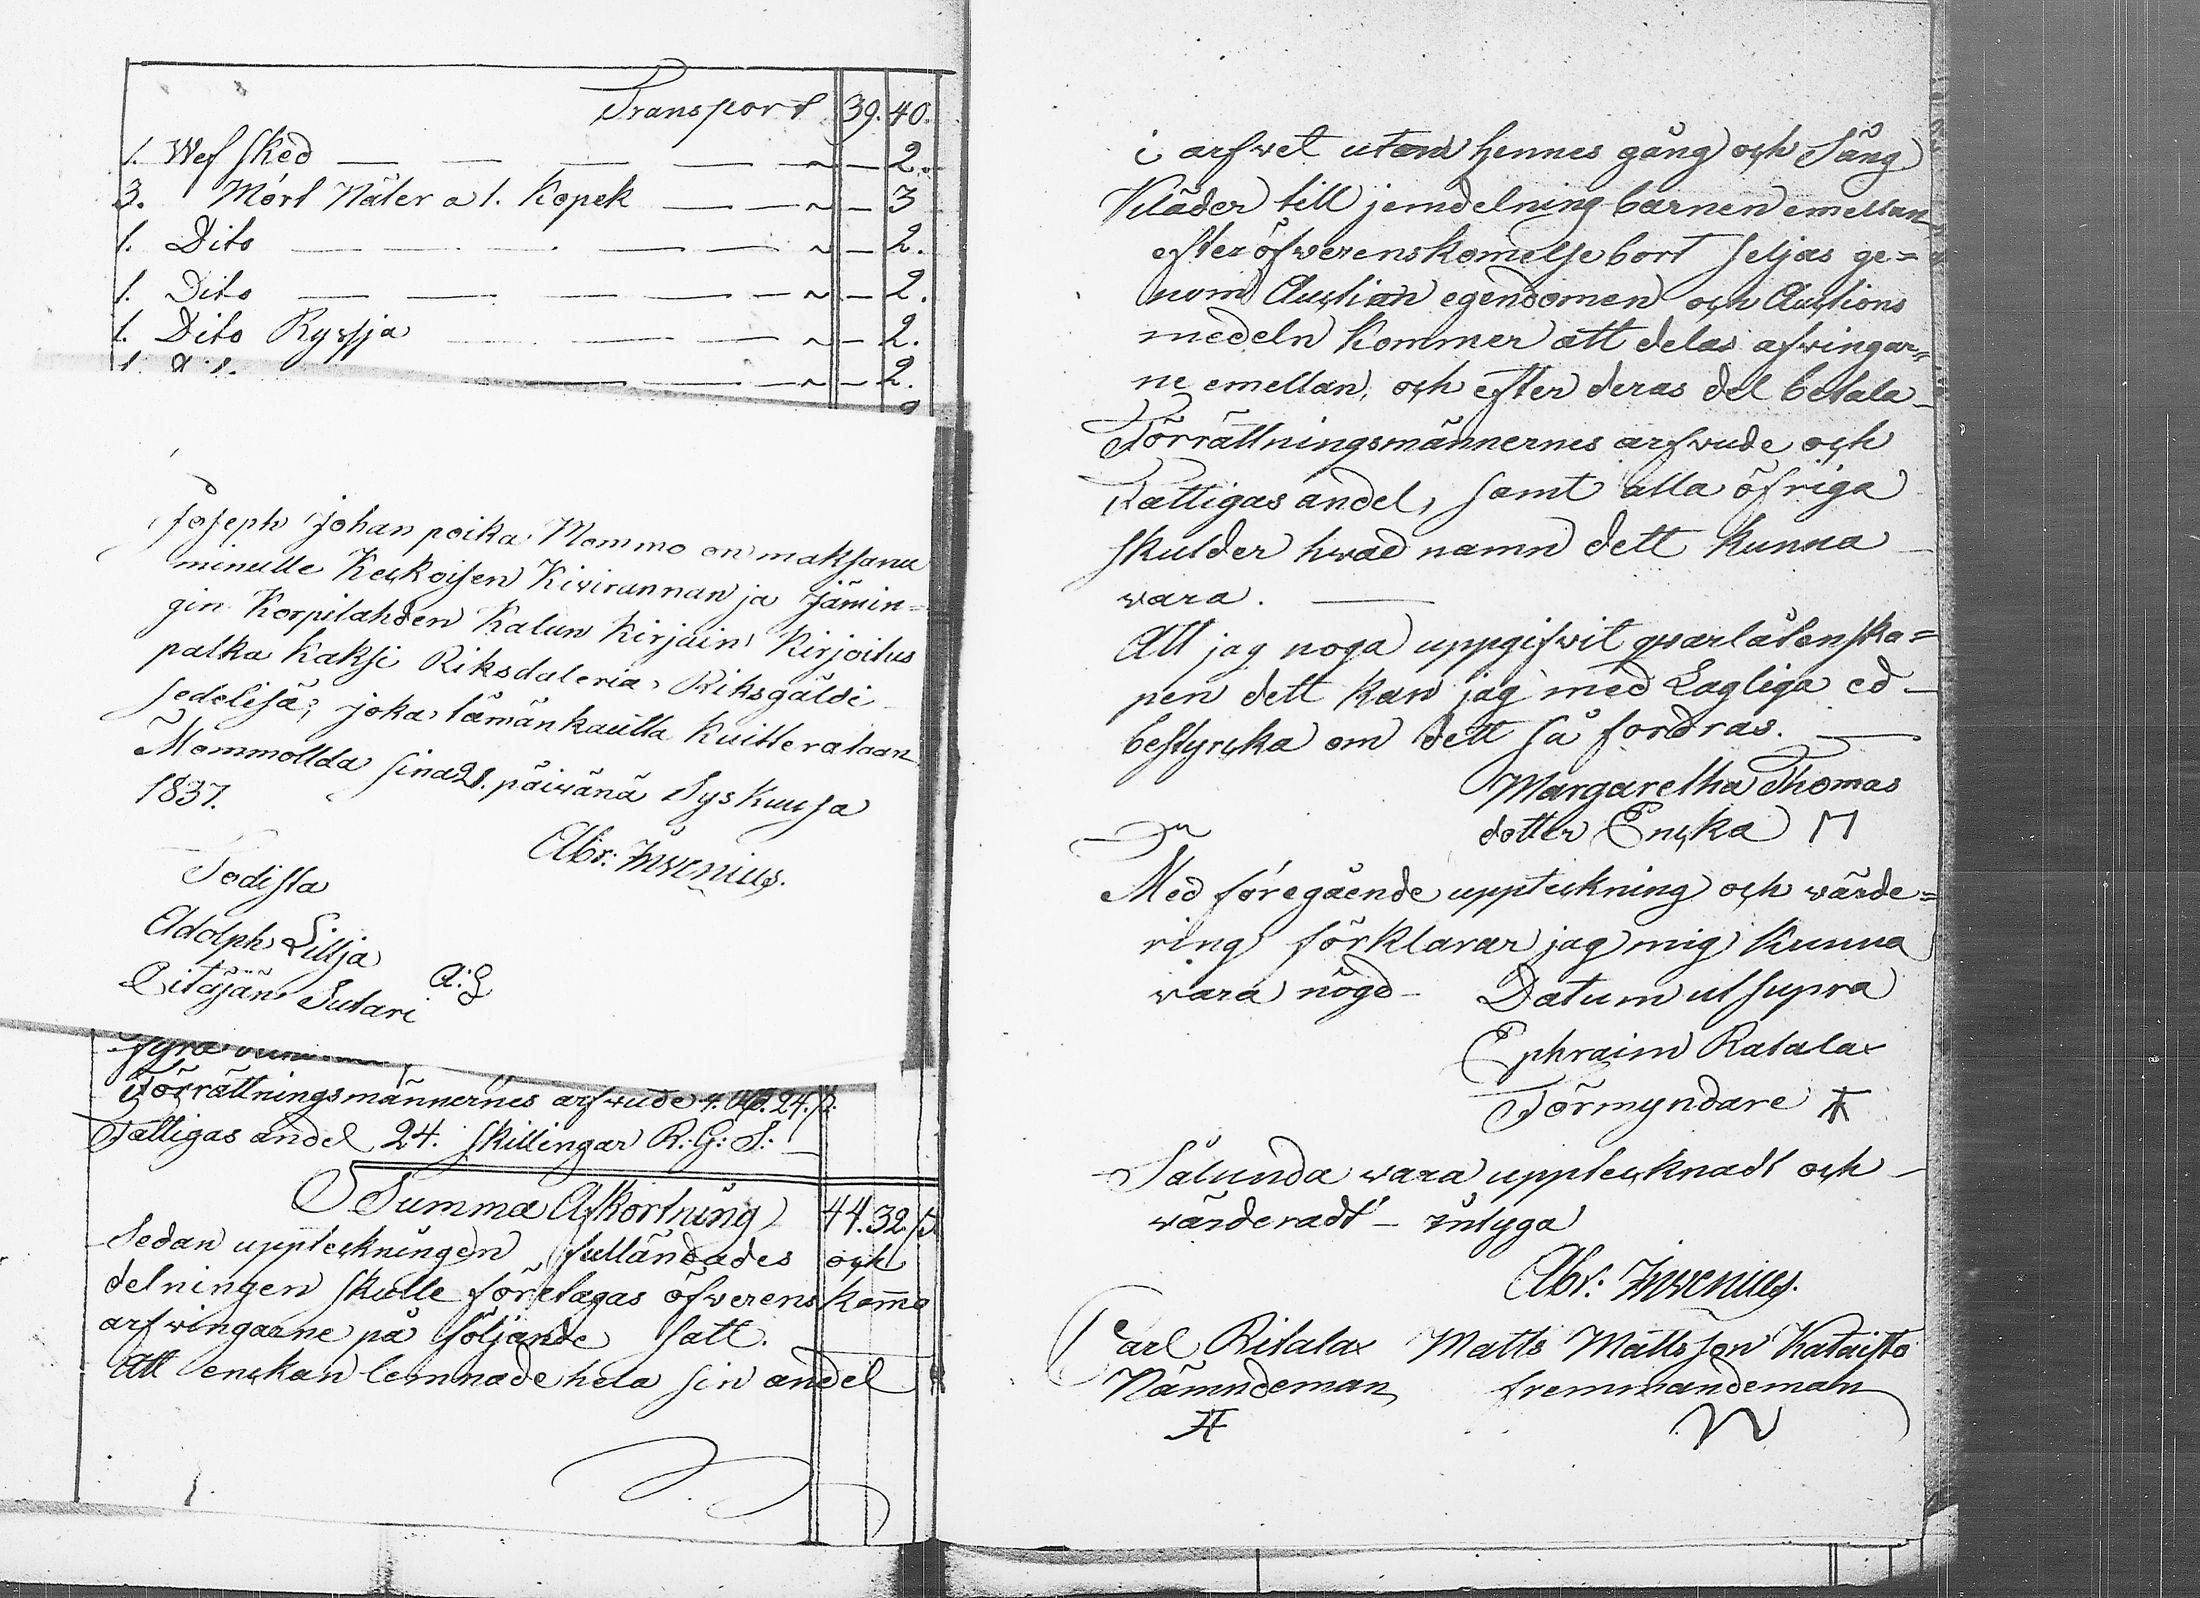 Transport 39. 40.
1. Wef sked — 2.
3. Mört Näter a 1. Kopek — 3
1. Dito — 2.
1. Dito — 2.
1. Dito Ryssja — 2.
— 2.
Joseph Johan poika Mommo on maksanu
minulle Keskoisen Kivirannan ja Jämin=
gin Korpilahden Kalun Kirjain Kirjoitus
palka Kaksi Riksdaleria Riksgäldi
sedelisä; joka tämänkautta Kuitterataan
Mommollda sina 28. päivänä Syskuusa
1837.
Abr: Invenius.
Todista
Adolph Lillja
Pitäjän Sutari A: L
fyra
Förrättningsmännernes arfvude 4. Rd. 24. s.
Fattigas andel 24. skillingar R: G: S:
Summa Afkortning 44. 32 s
Sedan uppteckningen fulländades och
delningen skulle företagas öfverenskomo
arfvingarne på följande satt.
Att enckan lemnade hela sin andel
i arfvet utom hennes gång och Säng
Kläder till jemdelning barnen emellan
efter öfverenskomelse bort seljas ge=
nom Auction egendomen och Auctions
medeln Kommer att delas arfvingar=
ne emellan, och efter deras del betala
Förrättningsmännernes arfvude och
Fattigas andel, samt alla öfriga
skulder hvad namn dett kunna
vara.
Att jag noga uppgifvit qvarlåtenska=
pen dett kan jag med Lagliga ed
bestyrcka om dett så fordras.
Margaretha Thomas
dotter Encka
Med föregående uppteckning och värde=
ring förklarar jag mig kunna
vara nögd Datum ut supra
Ephraim Ratala
Förmyndare
Sålunda vara upptecknadt och
värderadt intyga
Abr: Invenius.
Carl Ritala Matts Mattsson Kataisto
Nämndeman fremmandeman